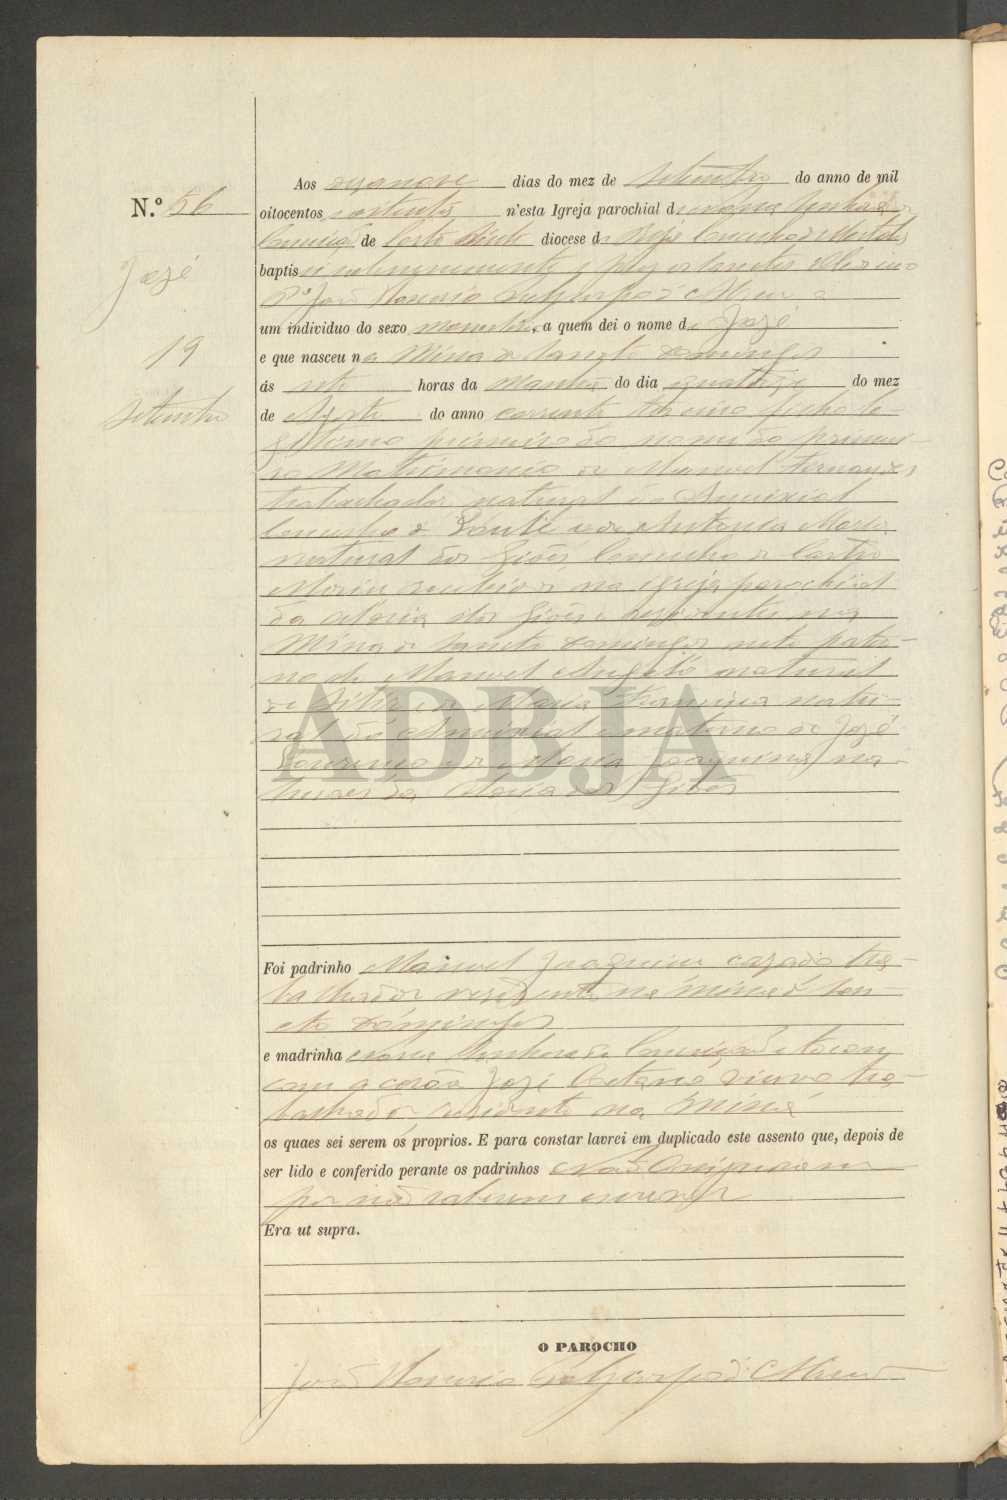 N.º 56
José
19
Setembro
Aos dezanove dias do mez de Setembro do anno de mil
oitocentos e setenta n'esta Igreja parochial de Nossa Senhora da
Conceição de diocese de Beja Concelho de Mertola
baptisei solemnemente
João
um individuo do sexo masculino, a quem dei o nome de José
e que nasceu na Mina de Sancto Domingos
ás sete horas da manhã do dia quatorze do mez
de Agosto do anno corrente filho le-
gitimo primeiro do nome do primei-
ro Matrimonio de Manuel Fernandes
trabalhador natural do Ameixial
Concelho de Loulé e de Antonia Maria
natural dos Giões Concelho de Castro
Marim recebidos na igreja parochial
da aldeia dos Giões e residentes na
Mina de Sancto Domingos neto pater-
no de Manuel natural
de e de Maria natu-
ral do Ameixial e materno de José
Lourenço e de Maria Joaquina na-
turaes da aldeia dos Giões
ADBJA
Foi padrinho Manuel Joaquim cazado tra-
balhador residente na Mina de San-
cto Domingos
e madrinha Nossa Senhora da Conceição e tocou
com a corôa José Caetano viuvo tra-
balhador residente na Mina
os quaes sei serem os proprios. E para constar lavrei em duplicado este assento que, depois de
ser lido e conferido perante os padrinhos não assignaram
por não saberem escrever
Era ut supra.
O PAROCHO
João